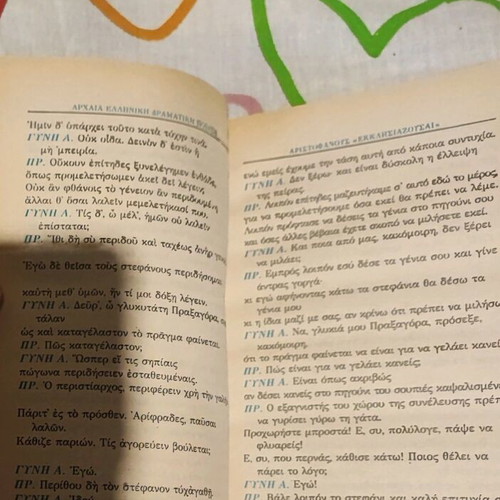 ΑΡΧΑΙΑ ΕΛΛΗΝΙΚΗ ΔΡΑΜΑΤΙΚΗ
Ἡμῖν δ' ὑπάρχει τοῦτο κατὰ τύχην τινά.
ΓΥΝΗ Α. Οὐκ οἶδα. Δεινὸν δ' ἐστὶν ἡ
μὴ 'μπειρία.
ΠΡ. Οὔκουν ἐπίτηδες ξυνελέγημεν ἐνθάδε,
ὅπως προμελετήσωμεν ἁκεῖ δεῖ λέγειν;
Οὐκ ἂν φθάνοις τὸ γένειον ἂν περιδουμένη
ἄλλαι θ' ὅσαι λαλεῖν μεμελετήκασί που.
ΓΥΝΗ Α. Τίς δ', ὦ μέλ', ἡμῶν οὐ λαλεῖν
ἐπίσταται;
ΠΡ. Ἴθι δὴ σὺ περιδοῦ καὶ ταχέως ἀνὴρ
Ἐγὼ δὲ θεῖσα τοὺς στεφάνους περιδήσομαι
καὐτὴ μεθ' ὑμῶν, ἤν τί μοι δόξῃ λέγειν.
ΓΥΝΗ Α. Δεῦρ', ὦ γλυκυτάτη Πραξαγόρα,
τάλαν
ὡς καὶ καταγέλαστον τὸ πρᾶγμα φαίνεται.
ΠΡ. Πῶς καταγέλαστον;
ΓΥΝΗ Α. Ὥσπερ εἴ τις σηπίαις
πώγωνα περιδήσειεν ἐσταθευμέναις.
ΠΡ. Ὁ περιστίαρχος, περιφέρειν χρὴ τὴν
Πάριτ' ἐς τὸ πρόσθεν. Ἀρίφραδες, παῦσαι
λαλῶν.
Κάθιζε παριών. Τίς ἀγορεύειν βούλεται;
ΓΥΝΗ Α. Ἐγώ.
ΠΡ. Περίθου δὴ τὸν στέφανον τὐχἀγαθῇ.
ΑΡΙΣΤΟΦΑΝΟΥΣ «ΕΚΚΛΗΣΙΑΖΟΥΣΑΙ»
ενώ εμείς έχουμε την τάση αυτή από κάποια συντυχία.
ΓΥΝΗ Α. Δεν ξέρω· και είναι δύσκολη η έλλειψη
της πείρας.
ΠΡ. Λοιπόν επίτηδες μαζευτήκαμε σ' αυτό εδώ το μέρος,
για να προμελετήσουμε όσα εκεί θα πρέπει να λέμε·
Λοιπόν πρόφτασε να δέσεις τα γένια στο πηγούνι σου
και όσες άλλες βέβαια έχετε σκοπό να μιλήσετε εκεί.
ΓΥΝΗ Α. Και ποια από μας, κακόμοιρη, δεν ξέρει
να μιλάει;
ΠΡ. Εμπρός λοιπόν εσύ δέσε τα γένια σου και γίνε
άντρας γοργά·
κι εγώ αφήνοντας κάτω τα στεφάνια θα δέσω τα
γένια μου
κι η ίδια μαζί με σας, αν κρίνω ότι πρέπει να μιλήσω
ΓΥΝΗ Α. Να, γλυκιά μου Πραξαγόρα, πρόσεξε,
κακόμοιρη,
ότι το πράγμα φαίνεται να είναι για να γελάει κανείς
ΠΡ. Πώς είναι για να γελάει κανείς;
ΓΥΝΗ Α. Είναι όπως ακριβώς
αν δέσει κανείς στο πηγούνι του σουπιές καψαλισμέν
ΠΡ. Ο εξαγνιστής του χώρου της συνέλευσης πρέπ
να γυρίσει γύρω τη γάτα.
Προχωρήστε μπροστά! Ε, συ, πολύλογε, πάψε να
φλυαρείς!
Ε, συ, που περνάς, κάθισε κάτω! Ποιος θέλει να
πάρει το λόγο;
ΓΥΝΗ Α. Εγώ!
ΠΡ. Βάλε λοιπόν το στεφάνι